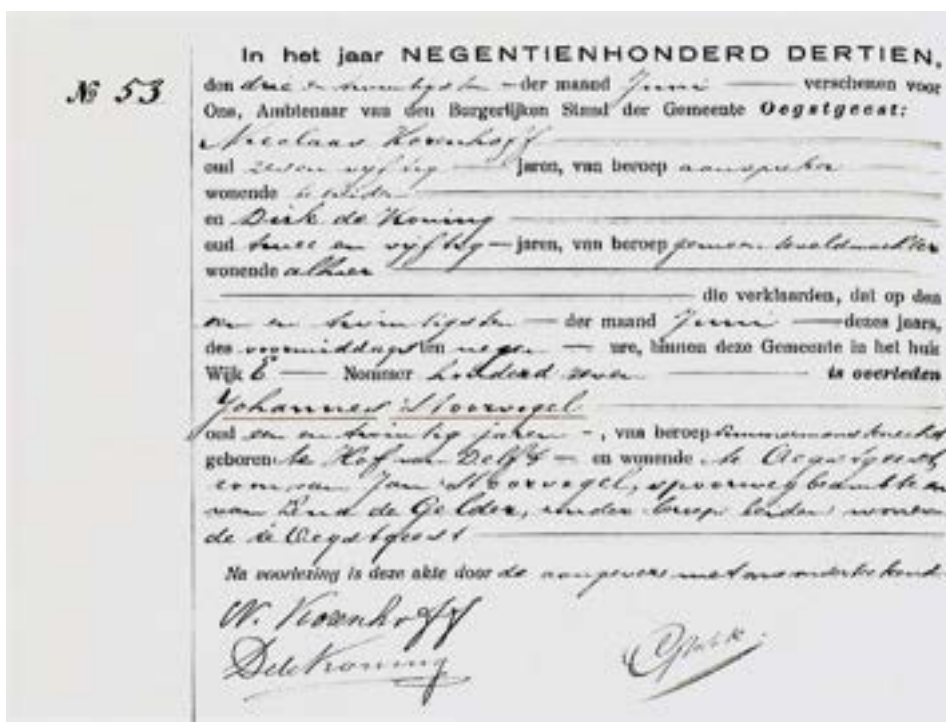 № 53
In het jaar NEGENTIENHONDERD DERTIEN,
den drie en twintigsten der maand Juni verschenen voor
Ons, Ambtenaar van den Burgerlijken Stand der Gemeente Oegstgeest:
Nicolaas
oud zeven vyftig jaren, van beroep aanspreker
wonende
en Dirk de Koning
oud twee en vyftig jaren, van beroep
wonende alhier
die verklaarden, dat op den
en twintigsten der maand Juni dezes jaars,
des voormiddags ten negen ure, binnen deze Gemeente in het huis
Wijk E Nommer honderd zeven is overleden
Johannes Stoorvogel
oud een en twintig jaren, van beroep timmermansknecht
geboren te Hof van Delft en wonende te Oegstgeest
zoon van Jan Stoorvogel, spoorwegbeambte en
van de Gelder, zonder beroep beiden wonen
de te Oegstgeest
Na voorlezing is deze akte door de aangevers met ons onderteekend.
N.
D de Koning